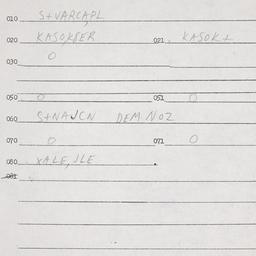 010 S+VARCA,PL
020 KASOKSER 021 KASOK+
030 O
050 O 051 O
060 S+NAJCN DEM NOZ
070 O 071 O
080 XALE,JLE
081